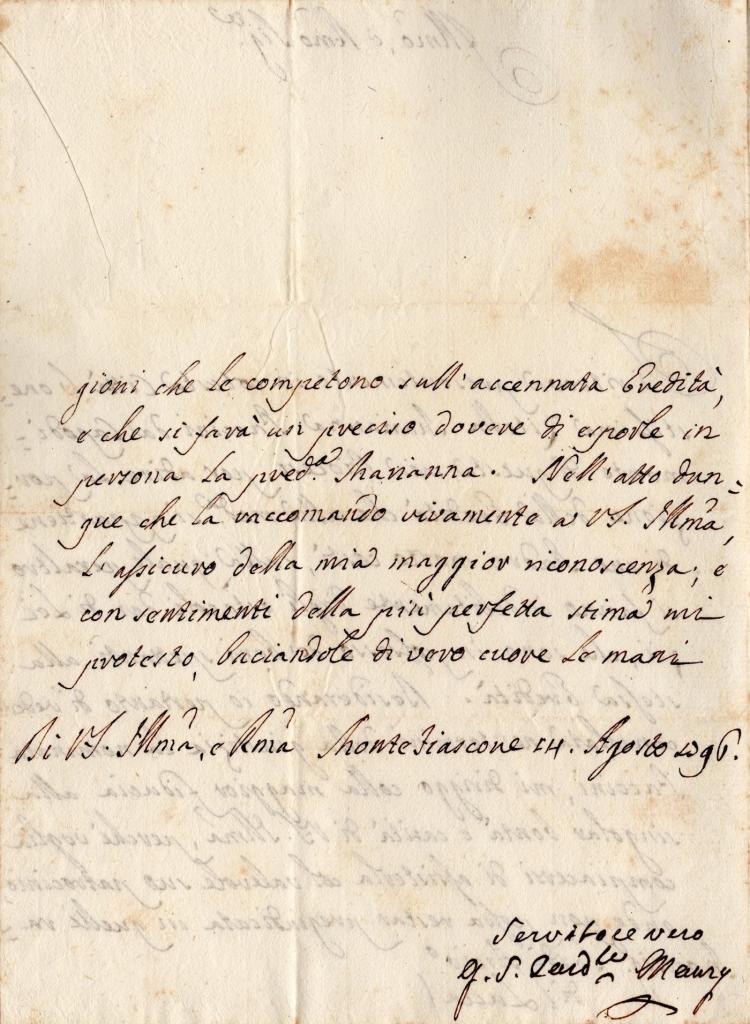 gioni che le competono sull'accennata Eredità,
e che si farà un preciso dovere di esporle in
persona la pred.ª Marianna. Nell'atto dun=
que che la raccomando vivamente a VS. Illma,
l'assicuro della mia maggior riconoscenza; e
con sentimenti della più perfetta stima mi
protesto, baciandole di vero cuore le mani
Di VS. Illma, e Rma Montefiascone 14. Agosto 1796.
Servitore vero
G. S. Card.le Maury